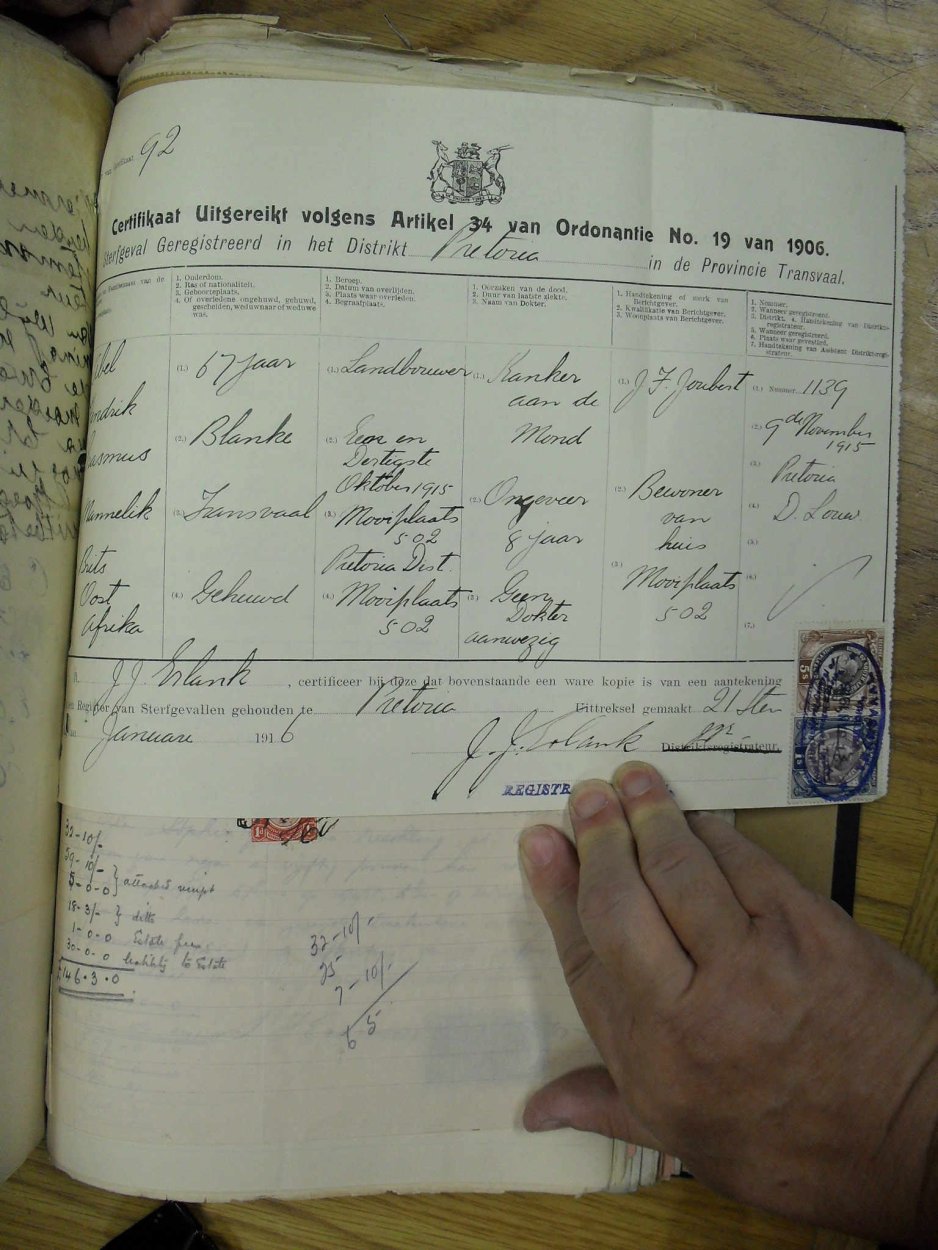 van Certifikaat 92
Certifikaat Uitgereikt volgens Artikel 34 van Ordonantie No. 19 van 1906.
Sterfgeval Geregistreerd in het Distrikt Pretoria in de Provincie Transvaal.
Familienaam van de
1. Ouderdom.
2. Ras of nationaliteit.
3. Geboorteplaats.
4. Of overledene ongehuwd, gehuwd,
gescheiden, weduwnaar of weduwe
was.
1. Beroep.
2. Datum van overlijden.
3. Plaats waar overleden.
4. Begraafplaats.
1. Oorzaken van de dood.
2. Duur van laatste ziekte.
3. Naam van Dokter.
1. Handtekening of merk van
Berichtgever.
2. Kwalifikatie van Berichtgever.
3. Woonplaats van Berichtgever.
1. Nommer.
2. Wanneer geregistreerd.
3. Distrikt. 4. Handtekening van Distrikts-
registrateur.
5. Wanneer geregistreerd.
6. Plaats waar gevestigd.
7. Handtekening van Assistent Distriktsregi-
strateur.
bel
ndrik
asmus
Mannelik
Brits
Oost
Afrika
(1.) 67 jaar
(2.) Blanke
(3.) Transvaal
(4.) Gehuwd
(1.) Landbouwer
(2.) Een en
Dertigste
Oktober 1915
(3.) Mooiplaats
502
Pretoria Dist.
(4.) Mooiplaats
502
(1.) Kanker
aan de
Mond
(2.) Ongeveer
8 jaar
(3) Geen
Dokter
aanwezig
(1.) J F Joubert
(2.) Bewoner
van
huis
(3) Mooiplaats
502
(1.) Nummer 1139
(2.) 9de November
1915
(3.) Pretoria
(4.) D. Louw
(5.)
(6.)
(7.)
J. J. Erlank, certificeer bij deze dat bovenstaande een ware kopie is van een aantekening
en Register van Sterfgevallen gehouden te Pretoria Uittreksel gemaakt 21sten
Januarie 1916
J. J. Erlank Distriktsregistrateur.
REGISTR
5s
1d
32-10/-
59-10/-
5-0-0 } attached receipt
18-3/- } ditto
1-0-0 Estate
30-0-0 to Estate
£146.3.0
32-10/-
25
7-10/-
6 5